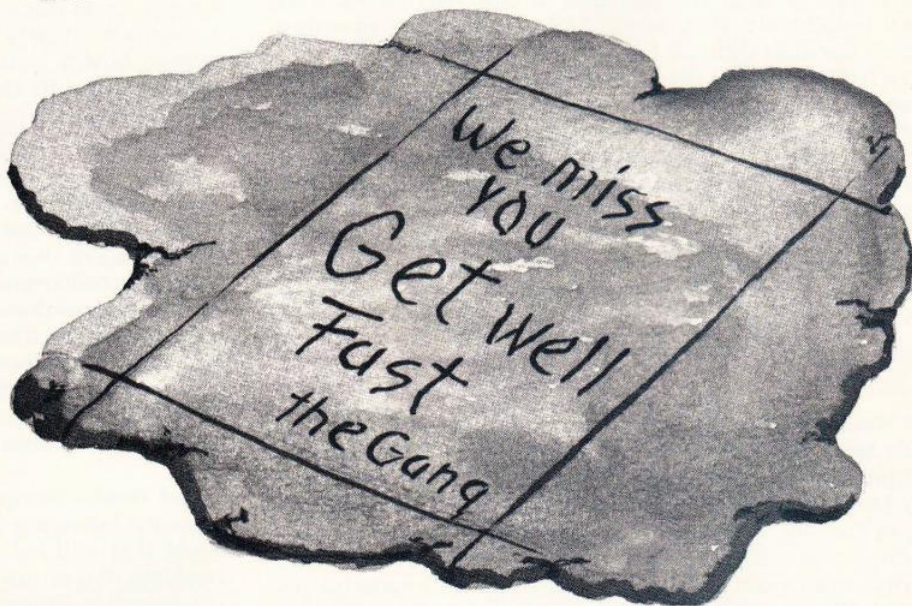 We miss
you
Get well
Fast
the Gang